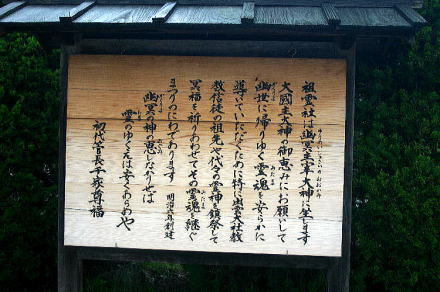 祖霊社は幽冥主宰大神に坐します
大國主大神の御恵みにお願いして
幽世に帰りゆく霊魂を安らかに
導いていただくために特に出雲大社教
教信徒の祖先や代々の霊神を鎮祭して
冥福を祈りあわせてその霊魂を継ぐ
まつりのにわであります
幽冥の神の恵しなかりせば
霊のゆくえは安くあらめや
初代管長千家尊福